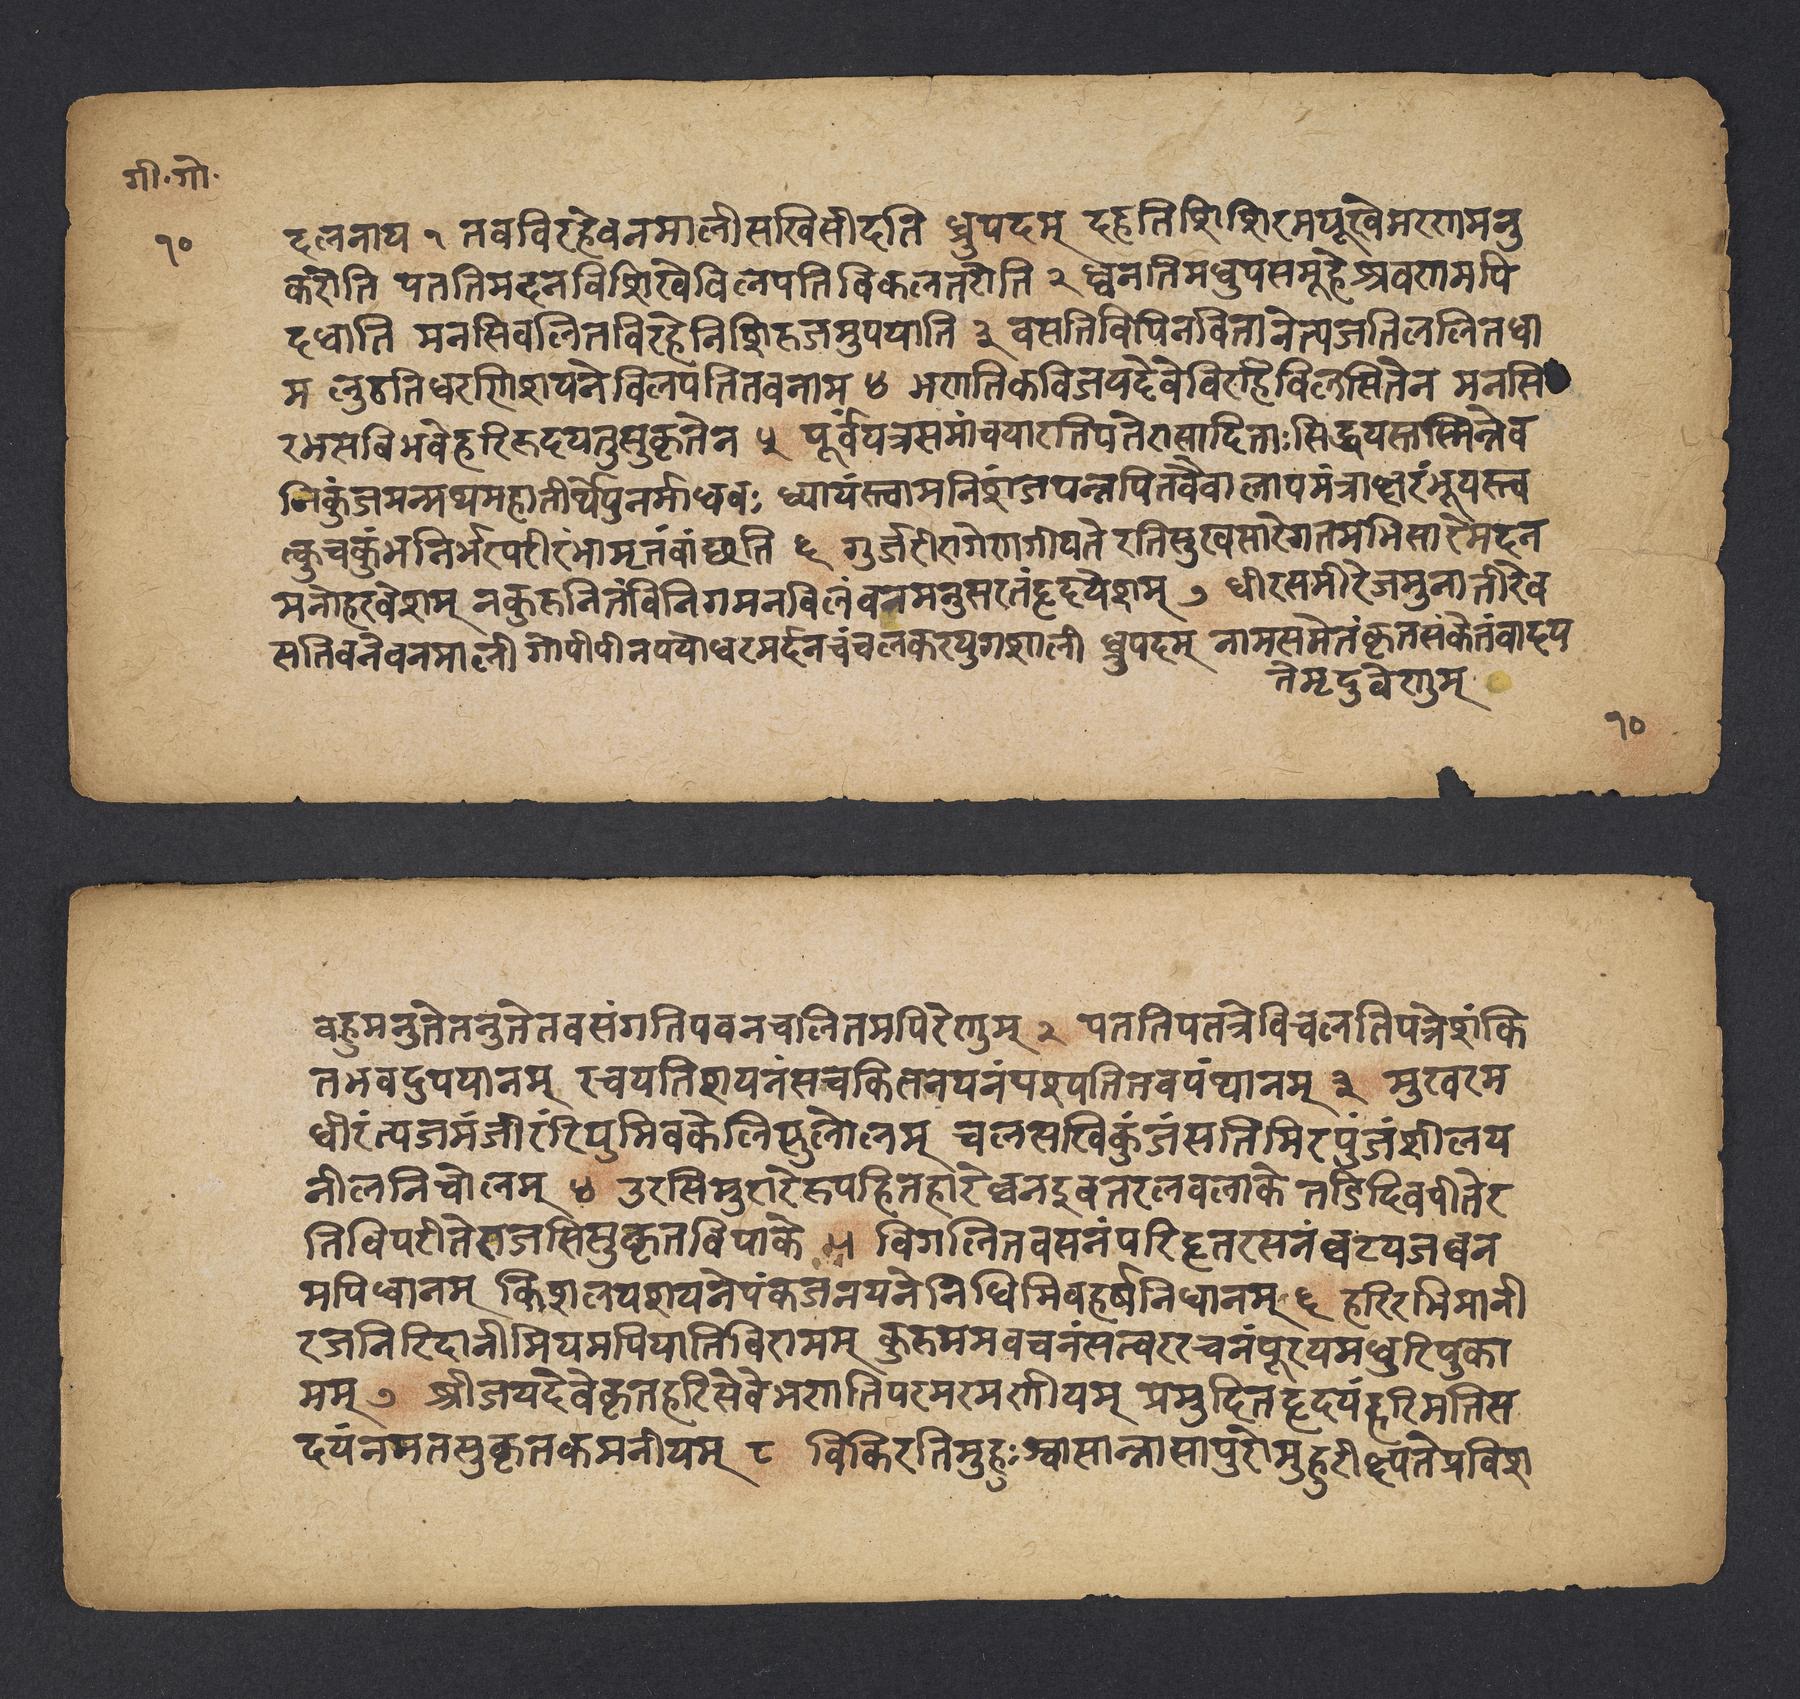 गी॰गो॰
१०
दलनाय १ तवविरहेवनमालीसखिसीदति ध्रुपदम् दहतिशिशिरमयूखेमरणमनु
करोति पततिमदनविशिखेविलपतिविकलतरोति २ ध्वनतिमधुपसमूहेश्रवणमपि
दधाति मनसिवलितविरहेनिशिरुजमुपयाति ३ वसतिविपिनवितानेत्यजतिललितधा
म लुठतिधरणिशयनेविलपतितवनाम ४ भणतिकविजयदेवेविरहिविलसितेन मनसि
रभसविभवेहरिरुदयतुसुकृतेन ५ पूर्वंयत्रसमांचयारतिपतेरासादिताःसिद्धयस्तस्मिन्नेव
निकुंजमन्मथमहातीर्थेपुनर्माधवः ध्यायंस्त्वामनिशंजपन्नपितवैवालापमंत्राक्षरंभूयस्त्व
त्कुचकुंभनिर्भरपरीरंभामृतंवांछति ६ गुर्जरीरागेरागीयते रतिसुखसारेगतमभिसारेमदन
मनोहरवेशम् नकुरुनितंविनिगमनविलंवनमनुसरतंहृदयेशम् ७ धीरसमीरेजमुनातीरेव
सतिवनेवनमाली गोपीपीनपयोधरमर्दनचंचलकरयुगशाली ध्रुपदम् नामसमेतंकृतसंकेतंवादय
तेमृदुवेणुम्
१०
वहुमनुतेतनुतेतवसंगतिपवनचलितमपिरेणुम् २ पततिपतत्रेविचलतिपत्रेशंकि
तभवदुपयानम् रचयतिशयनंसचकितनयनंपश्यतितवपंथानम् ३ मुखरम
धीरंत्यजमंजीरंरिपुमिवकेलिसुलोलम् चलसखिकुंजंसतिमिरपुंजंशीलय
नीलनिचोलम् ४ उरसिमुरारेरुपहितहारेघनइवतरलवलाके तडिदिवपीतेर
तिविपरीतेराजसिसुकृतविपाके ५ विगलितवसनंपरिहृतरसनंघटयजघन
मपिधानम् किशलयशयनेपंकजनयनेनिधिमिवहर्षनिधानम् ६ हरिरभिमानी
रजनिरिदानीमियमपियातिविरामम् कुरुममवचनंसत्वररचनंपूरयमधुरिपुका
मम् ७ श्रीजयदेवेकृतहरिसेवेभणतिपरमरमणीयम् प्रमुदितहृदयंहरिमतिस
दयंनमतसुकृतकमनीयम् ८ विकिरतिमुहुःश्वासान्नासापुरोमुहुरीक्षतेप्रविश